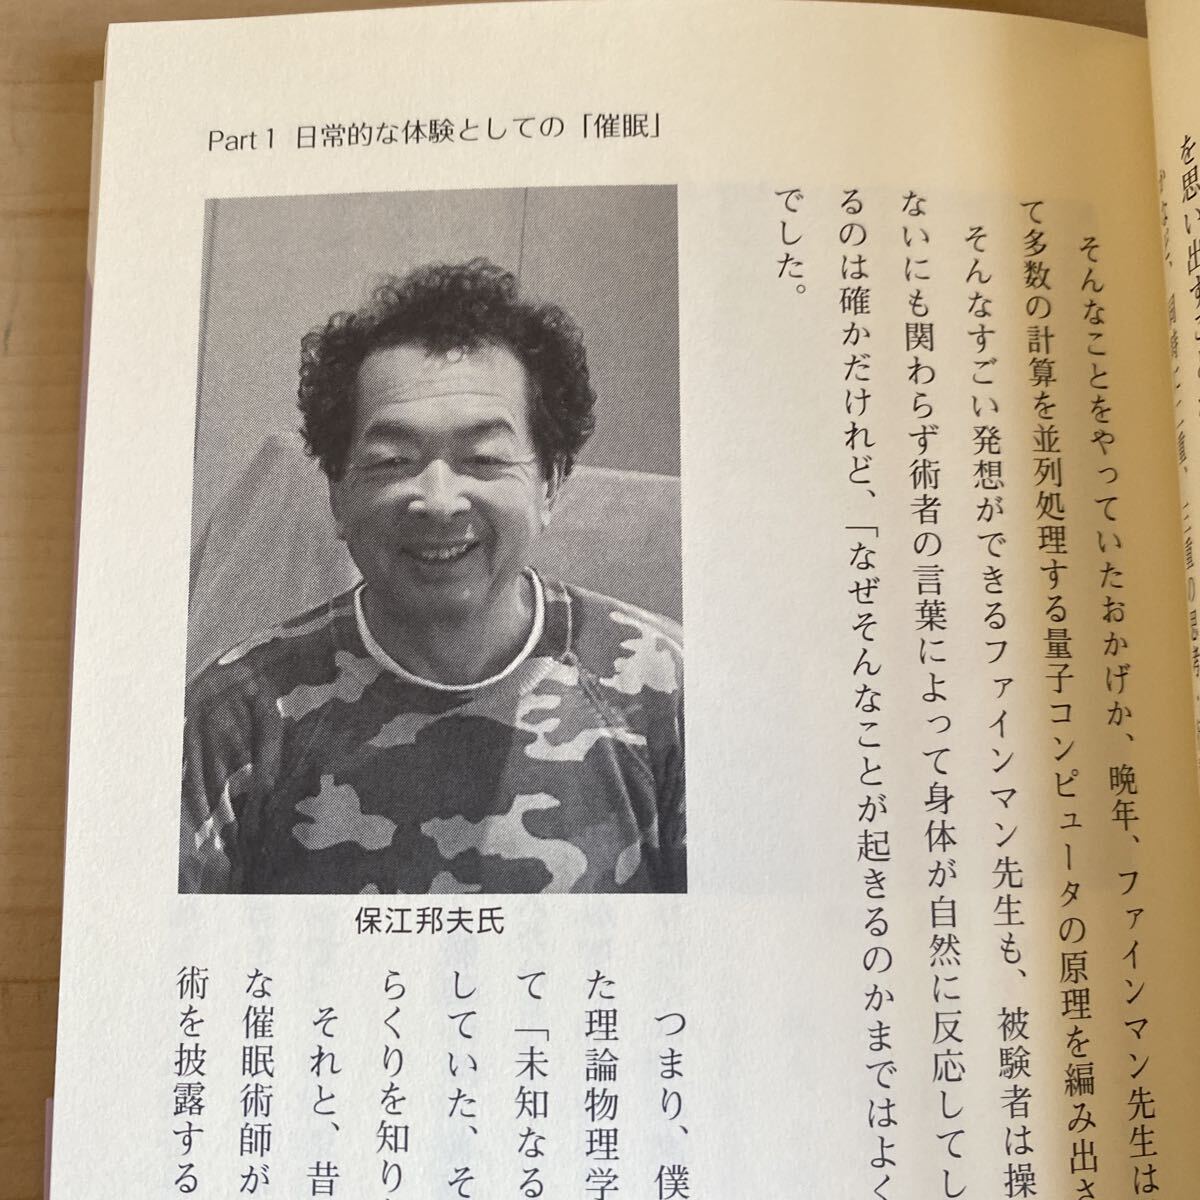 Part 1 日常的な体験としての「催眠」
を思い出す
そんなことをやっていたおかげか、晩年、ファインマン先生は
て多数の計算を並列処理する量子コンピュータの原理を編み出さ
そんなすごい発想ができるファインマン先生も、被験者は操
ないにも関わらず術者の言葉によって身体が自然に反応してし
るのは確かだけれど、「なぜそんなことが起きるのかまではよく
でした。
保江邦夫氏
つまり、僕
た理論物理学
て「未知なる
していた、そ
らくりを知り
それと、昔
な催眠術師が
術を披露する